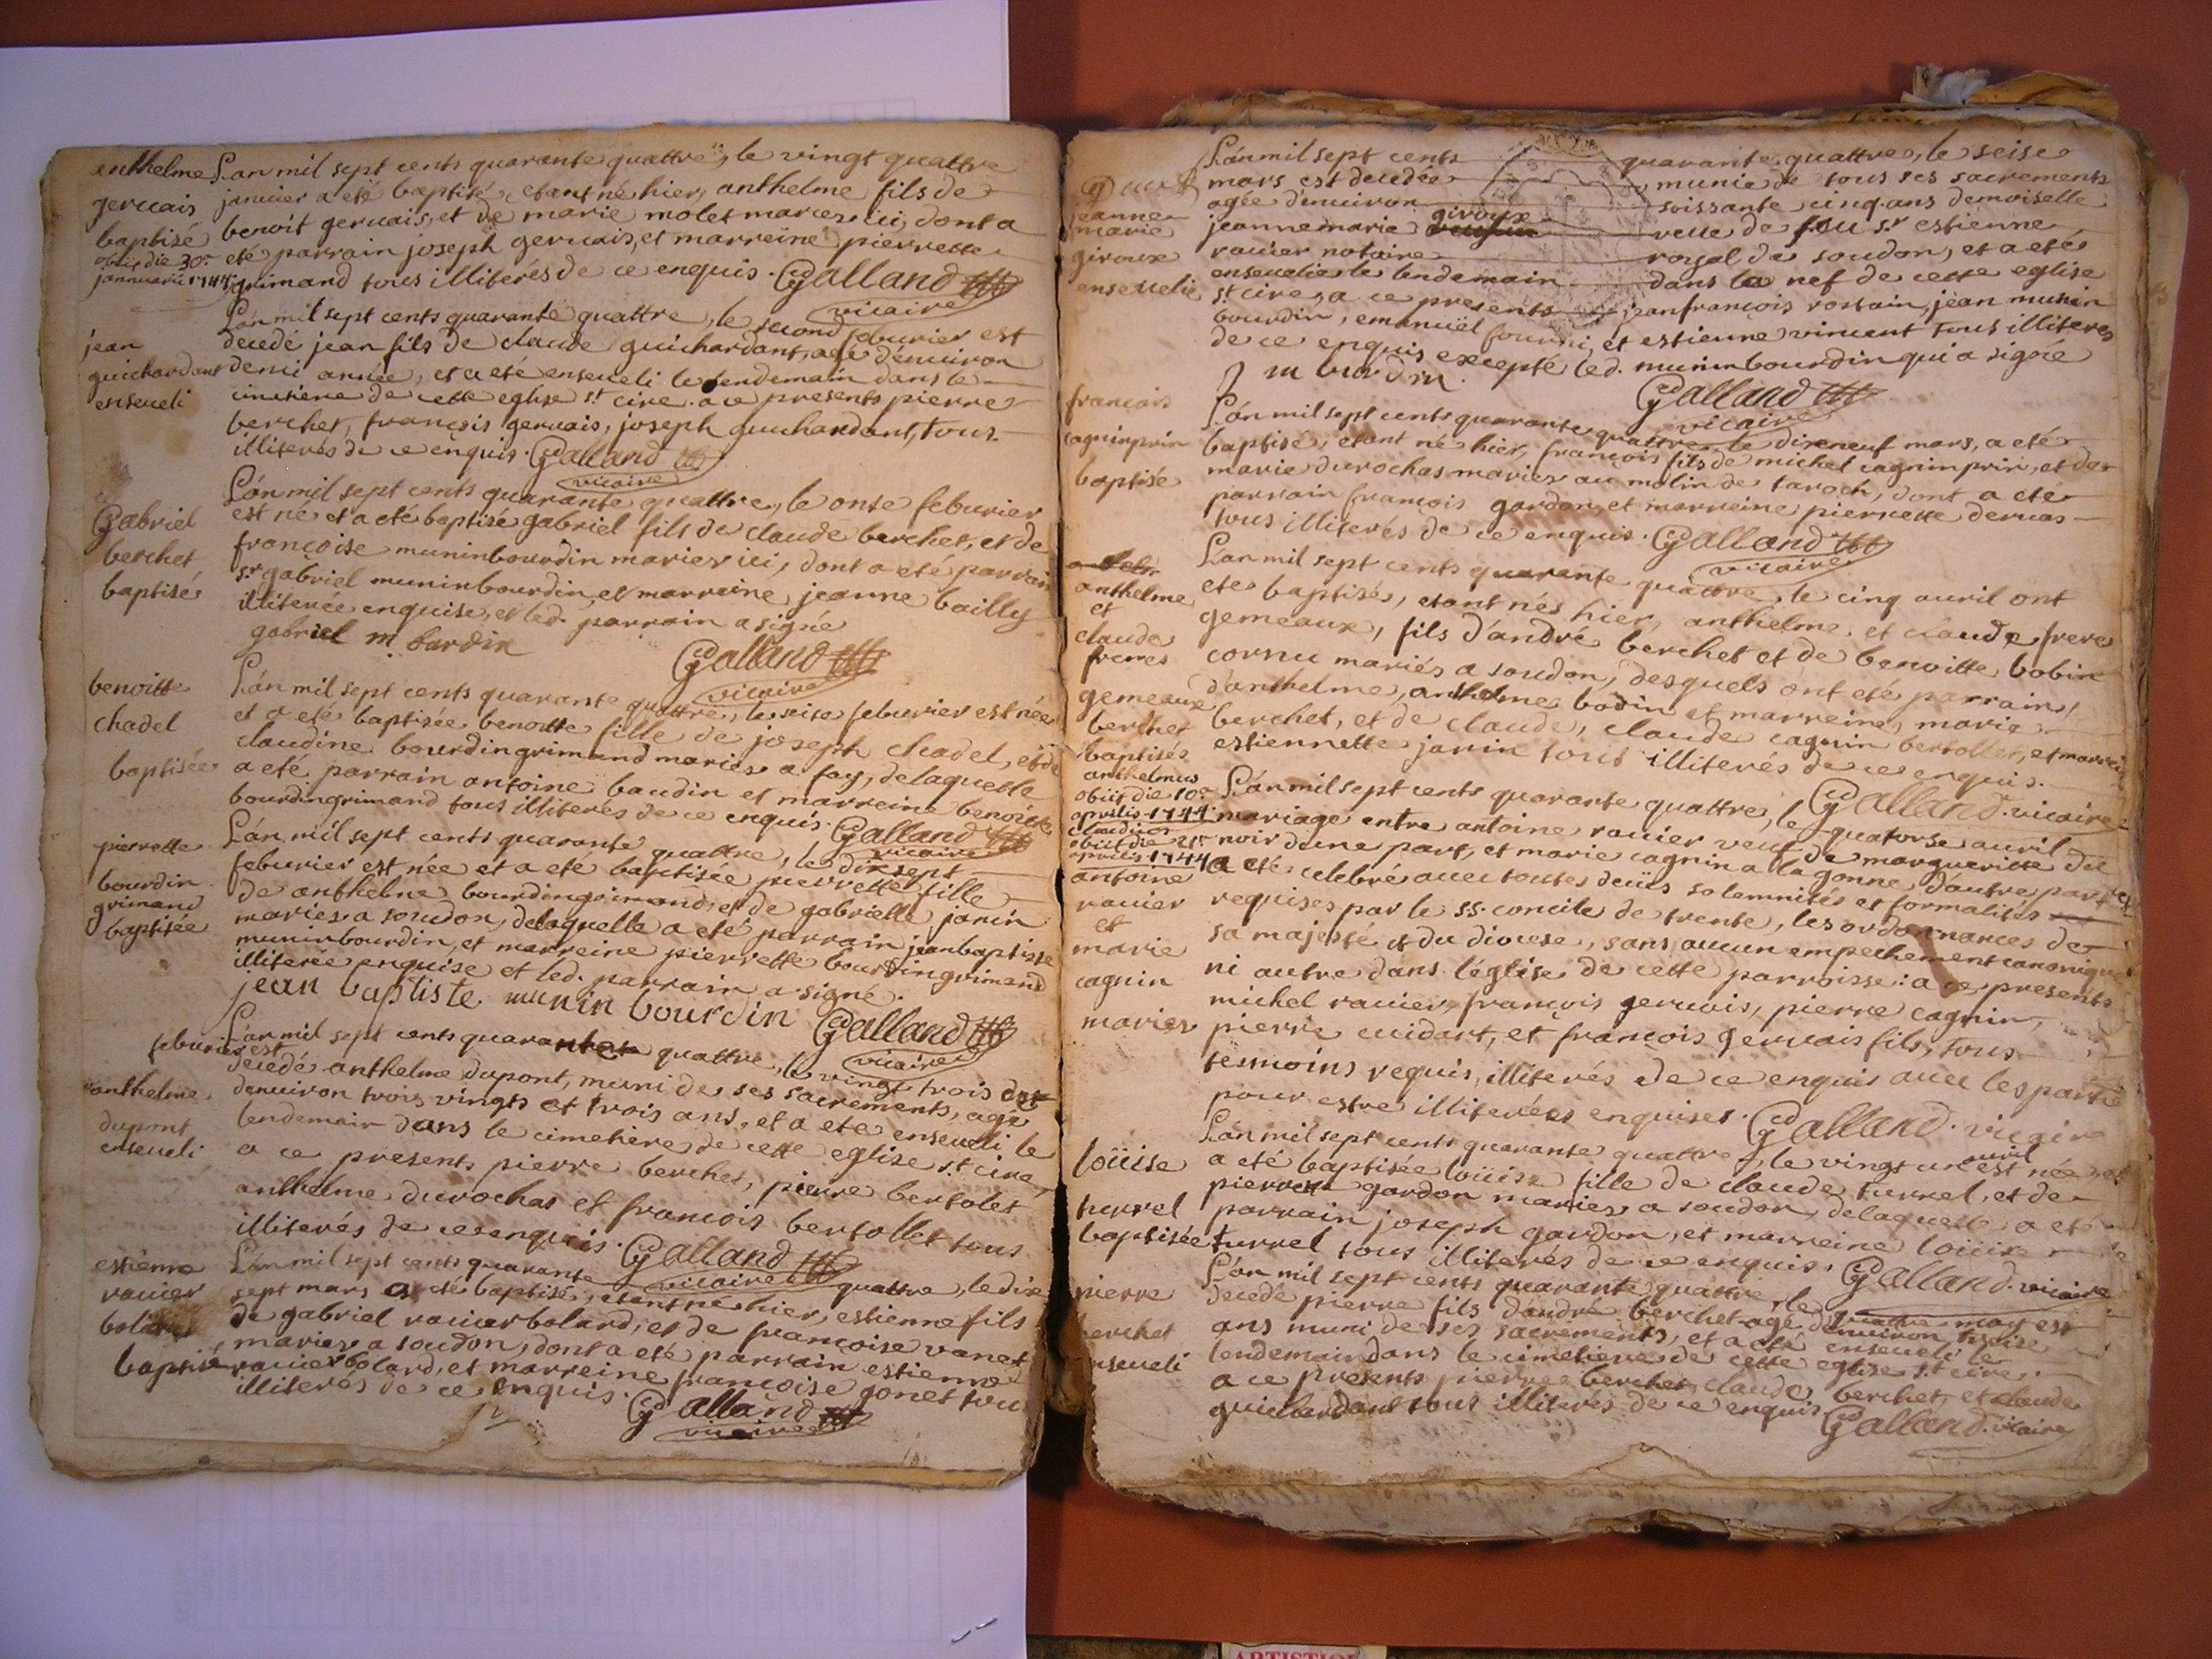 anthelme
gervais
baptisé
obiit die 30a
januarii 1744
L'an mil sept cents quarante quattre, le vingt quattre
janvier a eté baptisé, etant né hier, anthelme fils de
benoit gervais, et de marie molet maries ici, dont a
eté parrain joseph gervais, et marreine pierrette
grimand tous illiterés de ce enquis. Galland
vicaire
jean
guichardant
enseveli
L'an mil sept cents quarante quattre, le second feburier est
decedé jean fils de claude guichardant, agé denviron
demi année, et a eté enseveli le lendemain dans le
cimetiere de cette eglise st. cire. a ce presents pierre
berchet, françois gervais, joseph guichardant, tous
illiterés de ce enquis. Galland
vicaire
Gabriel
berchet
baptisé
L'an mil sept cents quarante quattre, le onse feburier
est né et a eté baptisé gabriel fils de claude berchet, et de
françoise muninbourdin maries ici, dont a eté parrain
sr. gabriel muninbourdin, et marreine jeanne bailly
illiterée enquise, et led. parrain a signé
gabriel m bardin
Galland
vicaire
benoitte
chadel
baptisée
L'an mil sept cents quarante quattre, le seise feburier est née
et a eté baptisée benoitte fille de joseph chadel, et de
claudine bourdingrimand maries a fay, delaquelle
a eté parrain antoine baudin et marreine benoitte
bourdingrimand tous illiterés de ce enquis. Galland
vicaire
pierrette
bourdin
grimand
baptisée
L'an mil sept cents quarante quattre, le dixsept
feburier est née et a eté baptisée pierrette fille
de anthelme bourdingrimand, et de gabrielle janin
maries a soudon, delaquelle a eté parrain jeanbaptiste
muninbourdin, et marreine pierrette bourdingrimand
illiterée enquise et led. parrain a signé.
jean baptiste munin bourdin Galland
vicaire
anthelme
dupont
enseveli
L'an mil sept cents quarante quattre, le vingt trois
feburier est
decedé anthelme dupont, muni de ses sacrements, agé
denviron trois vingts et trois ans, et a eté enseveli le
lendemain dans le cimetière de cette eglise st. cire,
a ce presents pierre berchet, pierre bertolet
anthelme durochas et françois bertollet tous
illiterés de ce enquis. Galland
vicaire
estienne
ravier
bolard
baptisé
L'an mil sept cents quarante quattre, le dix
sept mars a eté baptisé, etant né hier, estienne fils
de gabriel ravierbolard, et de françoise vanet
maries a soudon, dont a eté parrain estienne
ravierbolard, et marreine françoise gonet tous
illiterés de ce enquis. Galland
vicaire
jeanne
marie
giroux
ensevelie
L'an mil sept cents quarante quattre, le seise
mars est decedée munie de tous ses sacrements
agée denviron soissante cinq ans demoiselle
jeannemarie giroux veue de feu sr estienne
ravier notaire royal de soudon, et a eté
ensevelie le lendemain dans la nef de cette eglise
st. cire, a ce presents jeanfrancois rostain, jean munin
bourdin, emanuël fourni, et estienne vincent tous illiteres
de ce enquis excepté led. muninbourdin qui a signé
J m burdin.
Galland
vicaire
francois
cagninprin
baptisé
L'an mil sept cents quarante quattre, le dixeneuf mars, a eté
baptisé, etant né hier, françois fils de michel cagninprin, et de
marie durochas maries au molin de taroch, dont a eté
parrain francois gardon, et marreine pierrette dervas
tous illiterés de ce enquis. Galland
vicaire
anthelme
et
claude
freres
gemeaux
berchet
baptisés
anthelmus
obiit die 10a
aprilis 1744
claudius
obiit die 21a
aprilis 1744
L'an mil sept cents quarante quattre, le cinq avril ont
eté baptisés, etant nés hier, anthelme et claude freres
gemeaux, fils d'andré berchet et de benoitte bobin
cornu mariés a soudon, desquels ont eté parrains,
d'anthelme, anthelme bodin et marreine, marie
berchet, et de claude, claude cagnin bertollet, et marreine
estiennette janin tous illiterés de ce enquis.
Galland. vicaire
antoine
ravier
et
marie
cagnin
maries
L'an mil sept cents quarante quattre, le quatorse auril
mariage entre antoine ravier veuf de marguerite du
noir dune part, et marie cagnin a la gonne d'autre part
a eté celebré avec toutes deües solemnités et formalités
requises par le ss. concile de trente, les ordonnances de
sa majesté et du diocese, sans aucun empechement canonique
ni autre dans l'église de cette parroisse: a ce presents
michel ravier, françois gervais, pierre cagnin,
pierre cuidart, et françois gervais fils, tous
tesmoins requis, illiterés de ce enquis avec les parties
pour estre illiterées enquises. Galland. vicaire
loüise
turrel
baptisée
L'an mil sept cents quarante quattre, le vingt un avril est née, et
a eté baptisée loüise fille de claude turrel, et de
pierrette gardon maries a soudon, delaquelle a eté
parrain joseph gardon, et marreine loüise
turrel tous illiterés de ce enquis. Galland. vicaire
pierre
berchet
enseveli
L'an mil sept cents quarante quattre, le quattre may est
decedé pierre fils d'andré berchet agé denviron treise
ans muni de ses sacrements, et a eté enseveli le
lendemain dans le cimetiere de cette eglise st. cire.
a ce presents pierre berchet, claude berchet, et claude
guichardant tous illiterés de ce enquis. Galland. vicaire